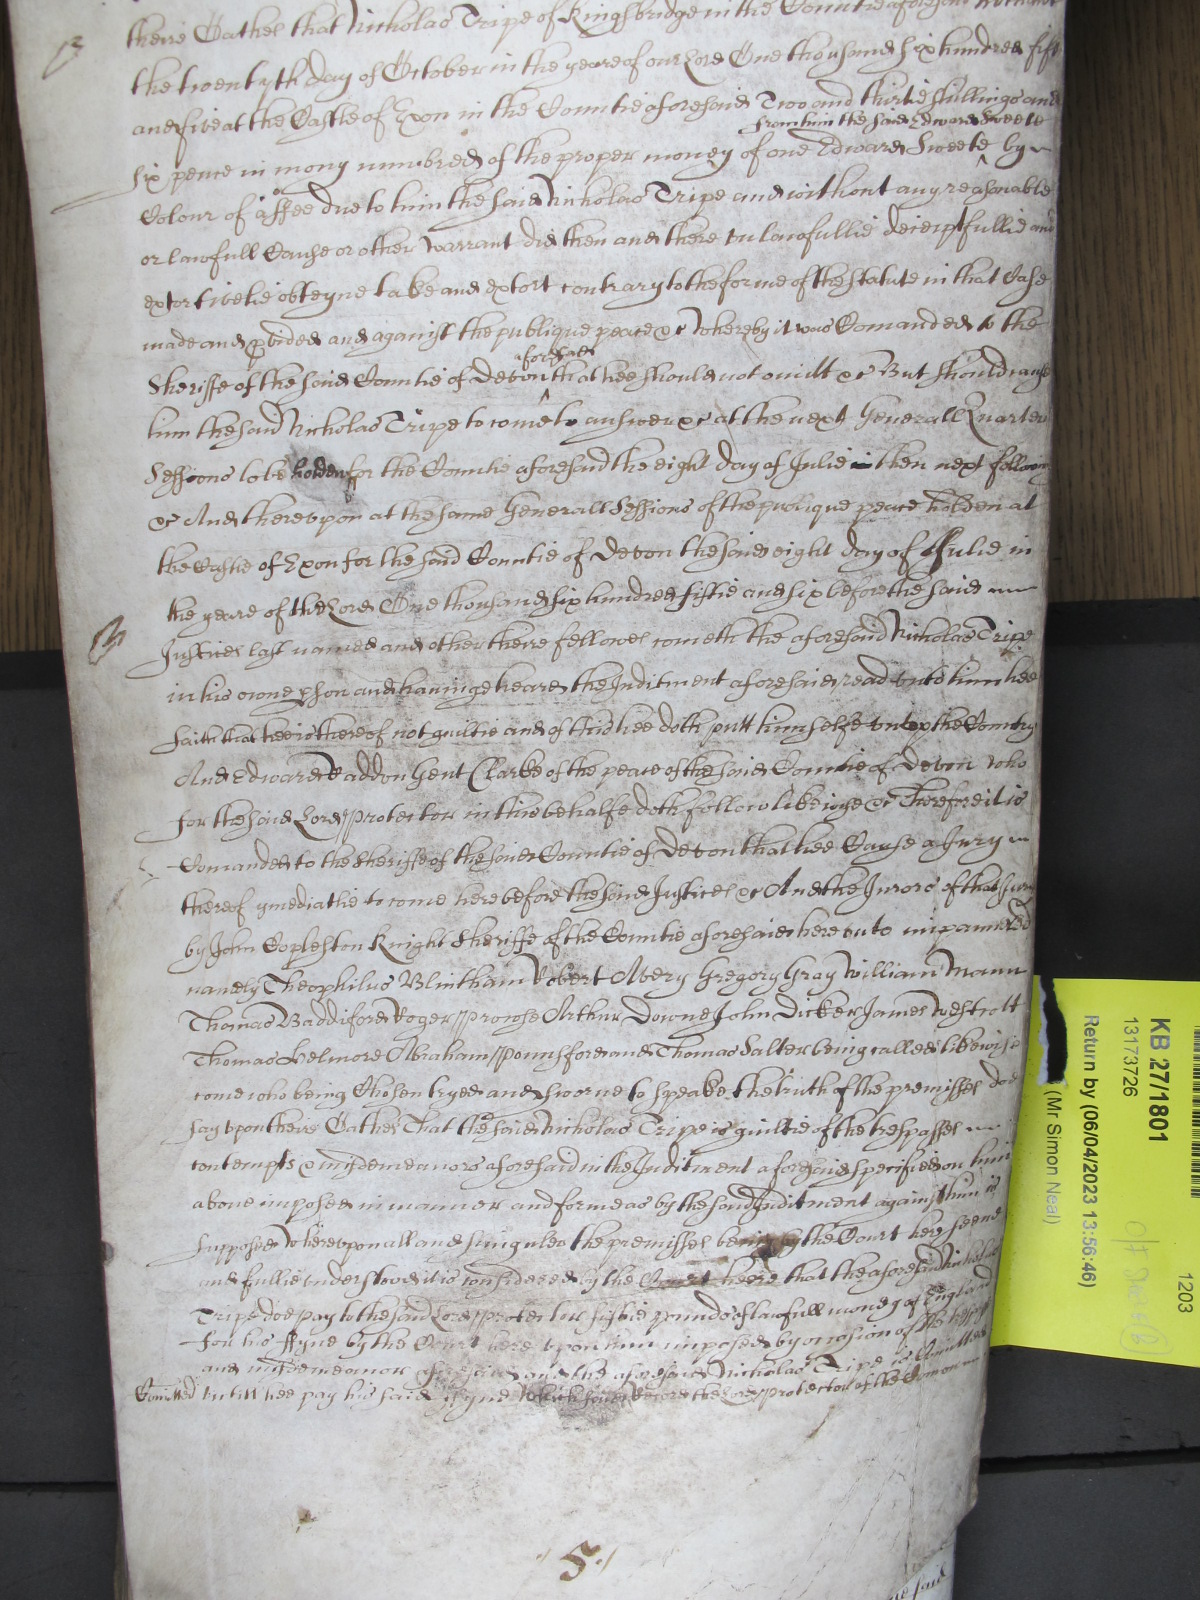 theire Oathes that Nicholas Tripe of Kingsbridge in the Countie aforesaid
the twentyth day of October in the yeare of our Lord One thousand six hundred fift
and five at the Castle of Exon in the Countie aforesaid Two and thirtie shillings and
from him the said Edward Sweete
six pence in mony numbred of the proper money of one Edward Sweete by
Colour of affee due to him the said Nicholas Tripe and without any reasonable
or lawfull Cause or other warrant did then and there unlawfullie deceiptfullie and
extortivelie obteyne take and extort contrary to the forme of the Statute in that Case
made and pvided and against the publique peace &c Whereby it was Comanded to the
aforesaid
Sheriffe of the said Countie of Devon that hee should not omitt &c But should cause
him the said Nicholas Tripe to come to answer &c at the next Generall Quarter
Sessions to be holden for the Countie aforesaid the eight day of Julie then next following
&c And therevpon at the same Generall Sessions of the publique peace holden at
the Castle of Exon for the said Countie of Devon the said eight day of Julie in
the yeare of the Lord One thousand six hundred fiftie and six before the said
Justices last named and other theire fellowes cometh the aforesaid Nicholas Tripe
in his owne pson and haveinge heard the Inditment aforesaid read unto him hee
saith that hee is thereof not guiltie and of this hee doth putt himselfe upon the Country
And Edward Raddon Gent Clarke of the peace of the said Countie of Devon who
for the said Lord Protector in this behalfe doth follow likewise &c Therefore it is
Comanded to the Sheriffe of the said Countie of Devon that hee Cause a Jury
thereof ymediatlie to come here before the said Justices &c And the Jurors of that Jury
by John Copleston Knight Sheriffe of the Countie aforesaid here unto impannelled
namely Theophilus Blintham Robert Avery Gregory Gray William Mann
Thomas Baddiford Roger Prowse Arthur Downe John Dicker James Westcott
Thomas Helmore Abraham Pounsford and Thomas Salter being called likewise
come who being Chosen tryed and sworne to speake the truth of the premisses doe
say upon theire Oathes That the said Nicholas Tripe is guiltie of the trespasses
contempts & misdemeanors aforesaid in the Inditment aforesaid specified on him
above imposed in manner and forme as by the said Inditment against him is
supposed Wherevpon all and singuler the premisses being by the Court here seene
and fullie understood it is considered by the Court heere that the aforesaid Nicholas
Tripe doe pay to the said Lord Protector fiftie pounds of lawfull money of England
for his ffyne by the Court here upon him imposed by occasion of the trespas
and misdemeanor aforesaid and the aforesaid Nicholas Tripe is
Comitted untill hee pay his said ffyne Which said Record the Lord Protector of the Comon
5
said
KB 27/1801
13173726
1203
Return by (06/04/2023 13:56:46)
(Mr Simon Neal)